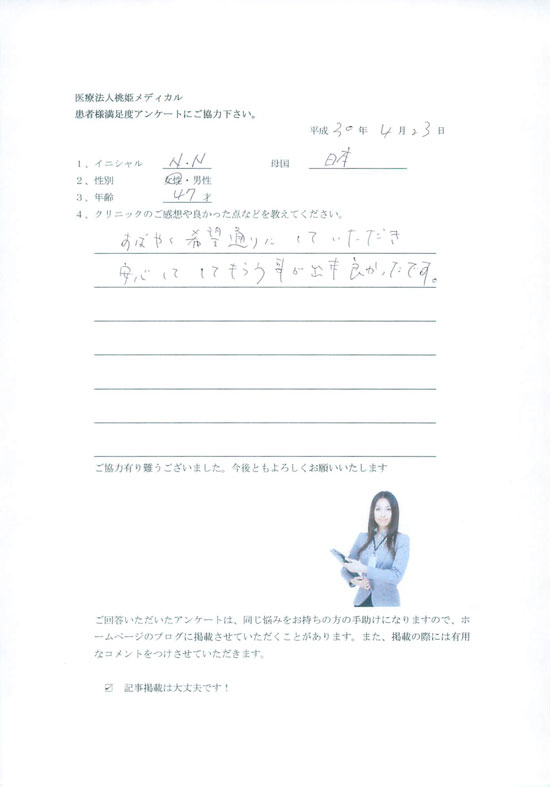 医療法人桃姫メディカル
患者様満足度アンケートにご協力下さい。
平成 30 年 4 月 23 日
1、イニシャル N.N 母国 日本
2、性別 女性・男性
3、年齢 47 才
4、クリニックのご感想や良かった点などを教えてください。
すばやく希望通りにしていただき
安心してしてもらう事が出来良かったです。
ご協力有り難うございました。今後ともよろしくお願いいたします
ご回答いただいたアンケートは、同じ悩みをお持ちの方の手助けになりますので、ホ
ームページのブログに掲載させていただくことがあります。また、掲載の際には有用
なコメントをつけさせていただきます。
☑ 記事掲載は大丈夫です！